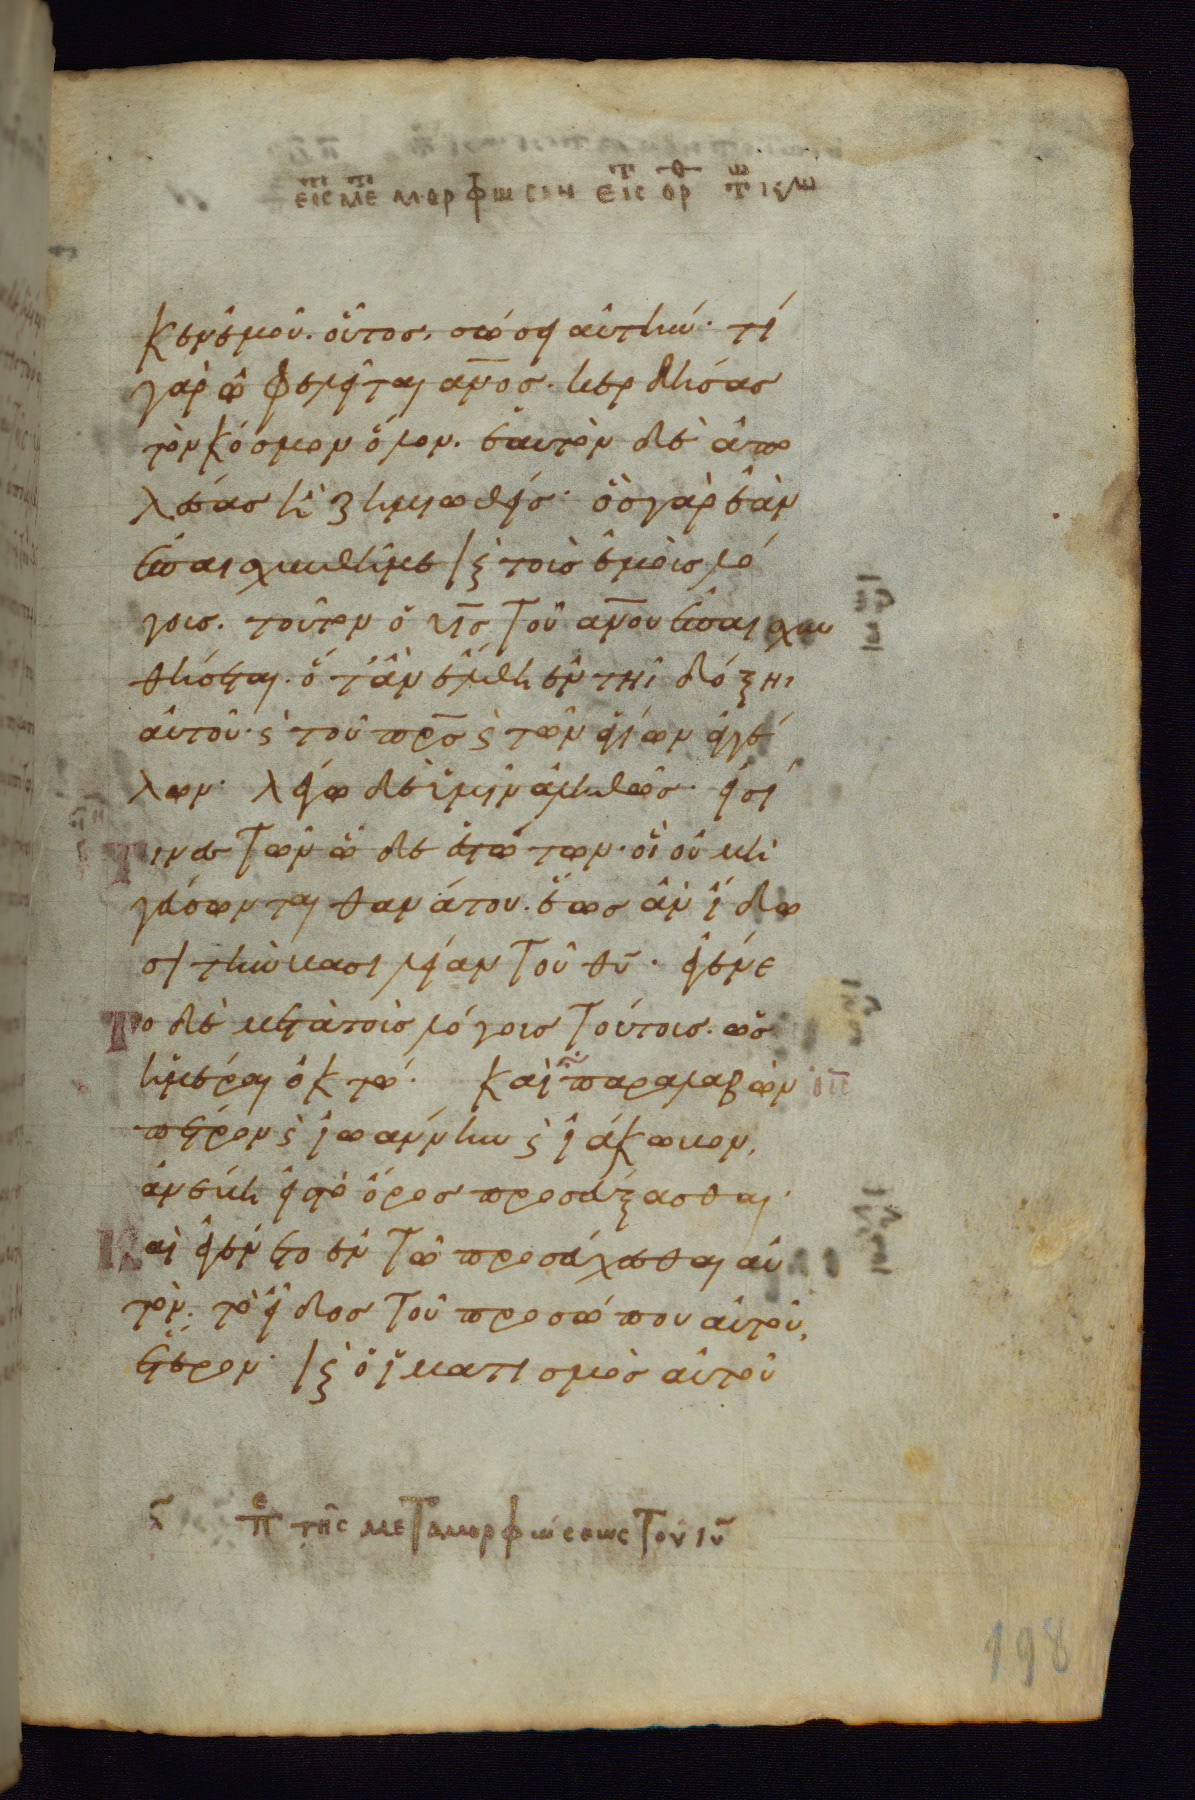 κεν ἐμοῦ. οὗτος. σώσει αὐτήν· τί
γὰρ ὠφελεῖται ἄνος. κερδήσας
τὸν κόσμον ὅλον. ἑαυτὸν δὲ ἀπο
λέσας ἢ ζημιωθείς· ὃς γὰρ ἐὰν
ἐπαισχυνθῆ με κ τοὺς ἐμοὺς λό
γους. τοῦτον ὁ υς τοῦ ανου ἐπαισχυν
θήσεται. ὅταν ἔλθη ἐν τῆι δόξηι
αὐτοῦ· κ τοῦ πρς κ τῶν ἁγίων ἀγγέ
λων· λέγω δὲ ὑμῖν ἀληθῶς· εἰσί
τινες τῶν ὧδε ἑστώτων· οἳ οὐ μὴ
γεύσωνται θανάτου. ἕως ἂν ἴδω
σι τὴν βασιλείαν τοῦ θυ· ἐγένε
το δὲ μετὰ τοὺς λόγους τούτους. ὡς
ἡμέραι ὀκτώ· καὶ παραλαβὼν
πέτρον κ ἰωάννην κ ἰάκωβον,
ἀνέβη εἰς τὸ ὄρος προσεύξασθαι·
Καὶ ἐγένετο ἐν τῶ προσεύχεσθαι αὐ
τὸν. τὸ εἶδος τοῦ προσώπου αὐτοῦ,
ἕτερον· κ ὁ ἱματισμὸς αὐτοῦ
τῆς μεταμορφώσεως τοῦ ιυ
198